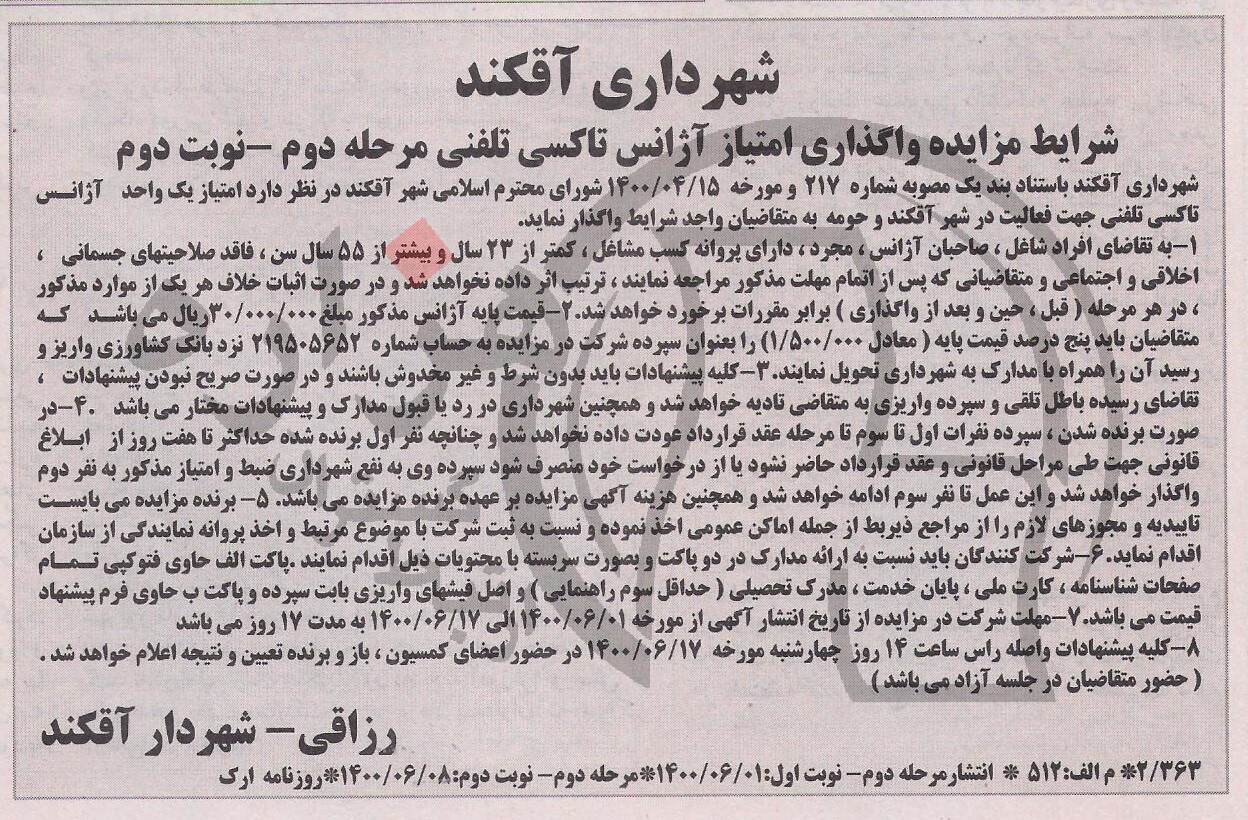 شهرداری آقکند
شرایط مزایده واگذاری امتیاز آژانس تاکسی تلفنی مرحله دوم –نوبت دوم
شهرداری آقکند باستناد بند یک مصوبه شماره ۲۱۷ و مورخه ۱۴۰۰/۰۴/۱۵ شورای محترم اسلامی شهر آقکند در نظر دارد امتیاز یک واحد آژانس
تاکسی تلفنی جهت فعالیت در شهر آقکند و حومه به متقاضیان واجد شرایط واگذار نماید.
۱–به تقاضای افراد شاغل ، صاحبان آژانس ، مجرد ، دارای پروانه کسب مشاغل ، کمتر از ۲۳ سال و بیشتر از ۵۵ سال سن ، فاقد صلاحیتهای جسمانی ،
اخلاقی و اجتماعی و متقاضیانی که پس از اتمام مهلت مذکور مراجعه نمایند ، ترتیب اثر داده نخواهد شد و در صورت اثبات خلاف هر یک از موارد مذکور
، در هر مرحله ( قبل ، حین و بعد از واگذاری ) برابر مقررات برخورد خواهد شد.۲–قیمت پایه آژانس مذکور مبلغ۳۰/۰۰۰/۰۰۰ریال می باشد که
متقاضیان باید پنج درصد قیمت پایه ( معادل ۱/۵۰۰/۰۰۰) را بعنوان سپرده شرکت در مزایده به حساب شماره ۲۱۹۵۰۵۶۵۲ نزد بانک کشاورزی واریز و
رسید آن را همراه با مدارک به شهرداری تحویل نمایند.۳–کلیه پیشنهادات باید بدون شرط و غیر مخدوش باشند و در صورت صریح نبودن پیشنهادات ،
تقاضای رسیده باطل تلقی و سپرده واریزی به متقاضی تادیه خواهد شد و همچنین شهرداری در رد یا قبول مدارک و پیشنهادات مختار می باشد .۴–در
صورت برنده شدن ، سپرده نفرات اول تا سوم تا مرحله عقد قرارداد عودت داده نخواهد شد و چنانچه نفر اول برنده شده حداکثر تا هفت روز از ابلاغ
قانونی جهت طی مراحل قانونی و عقد قرارداد حاضر نشود یا از درخواست خود منصرف شود سپرده وی به نفع شهرداری ضبط و امتیاز مذکور به نفر دوم
واگذار خواهد شد و این عمل تا نفر سوم ادامه خواهد شد و همچنین هزینه آگهی مزایده بر عهده برنده مزایده می باشد. ۵– برنده مزایده می بایست
تاییدیه و مجوزهای لازم را از مراجع ذیربط از جمله اماکن عمومی اخذ نموده و نسبت به ثبت شرکت با موضوع مرتبط و اخذ پروانه نمایندگی از سازمان
اقدام نماید.۶–شرکت کنندگان باید نسبت به ارائه مدارک در دو پاکت و بصورت سربسته با محتویات ذیل اقدام نمایند .پاکت الف حاوی فتوکپی تمام
صفحات شناسنامه ، کارت ملی ، پایان خدمت ، مدرک تحصیلی ( حداقل سوم راهنمایی ) و اصل فیشهای واریزی بابت سپرده و پاکت ب حاوی فرم پیشنهاد
قیمت می باشد.۷–مهلت شرکت در مزایده از تاریخ انتشار آگهی از مورخه ۱۴۰۰/۰۶/۰۱ الی ۱۴۰۰/۰۶/۱۷ به مدت ۱۷ روز می باشد
۸–کلیه پیشنهادات واصله راس ساعت ۱۴ روز چهارشنبه مورخه ۱۴۰۰/۰۶/۱۷ در حضور اعضای کمسیون ، باز و برنده تعیین و نتیجه اعلام خواهد شد .
( حضور متقاضیان در جلسه آزاد می باشد )
رزاقی– شهردار آقکند
۲/۳۶۳* م الف:۵۱۲ * انتشارمرحله دوم– نوبت اول:۱۴۰۰/۰۶/۰۱*مرحله دوم– نوبت دوم:۱۴۰۰/۰۶/۰۸*روزنامه ارک